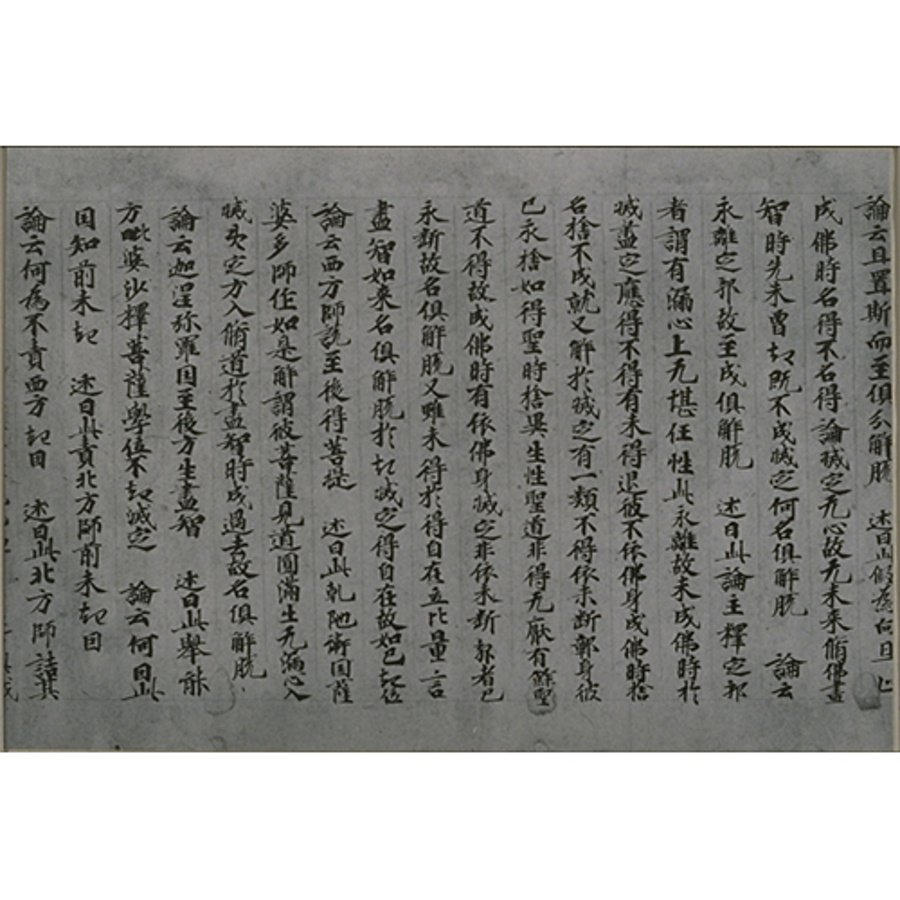 論云且置斯而至俱分解脱 述曰此假為何且
成佛時名得不名得論滅之无心故无未来脩佛盡
智時先未曾起既不成滅之何名俱解脱 論云
永離之郭故至成俱解脱 述曰此論主釋之郭
者謂有漏心上无堪任性此永離故未成佛時於
滅盡之應得不得有未得退彼不依佛身成佛時捨
名捨不成就又解於滅之有一類不得依未断鄣身彼
已永捨如得聖時捨異生性聖道非得无猒有餘聖
道不得故成佛時有依佛身滅之非依未断郭者已
永断故名俱解脱又雖未得於得自在立比量言
盡智如来名俱解脱於起滅之得自在故如已起位
論云西方師説至後得菩提 述曰此乾陁衛国薩
婆多師作如是解謂彼菩薩見道圓滿生无漏心入
滅㝎之方入脩道於盡智時成過去故名俱解脱
論云迦湿弥羅国至後方生盡智 述曰此舉
方毗婆沙釋菩薩學位不起滅之 論云何因此
因知前未起 述曰此責北方師前未起因
論云何為不責西方起因 述曰此北方師詰